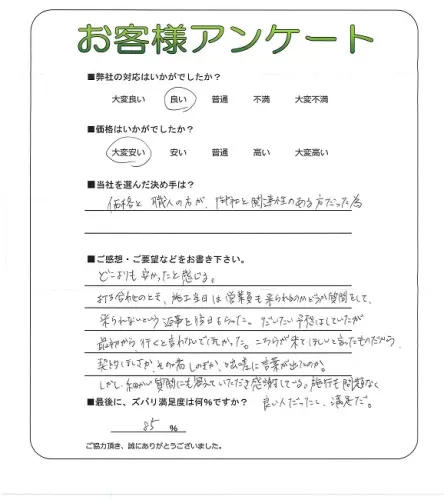 お客様アンケート
■弊社の対応はいかがでしたか？
大変良い 良い 普通 不満 大変不満
■価格はいかがでしたか？
大変安い 安い 普通 高い 大変高い
■当社を選んだ決め手は？
価格と職人の方が、 と関連性のある方だった為
■ご感想・ご要望などをお書き下さい。
どこよりも安かったと感じる。
打ち合わせのとき、施工当日は営業員も来られるのかどうか質問をして、
来られないという返事を もらった。だいたい予想はしていたが
最初から行くと言わないでほしかった。こちらが来てほしいと言ったものだから、
契約ほしさか、その為しのぎか、 に言葉が出たのか。
しかし細かい質問にも答えていただき感謝している。施行も問題なく
良い人だったし、満足だ。
■最後に、ズバリ満足度は何％ですか？
85 %
ご協力頂き、誠にありがとうございました。